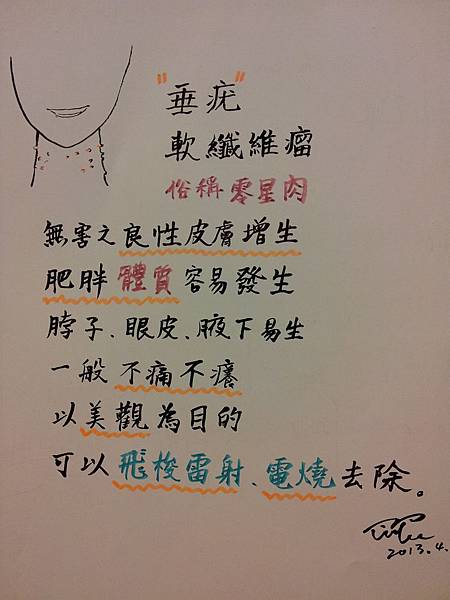 "垂疣"
軟纖維瘤
俗稱零星肉
無害之良性皮膚增生
肥胖體質容易發生
脖子、眼皮、腋下易生
一般不痛不癢
以美觀為目的
可以飛梭雷射、電燒去除。
2013.4.